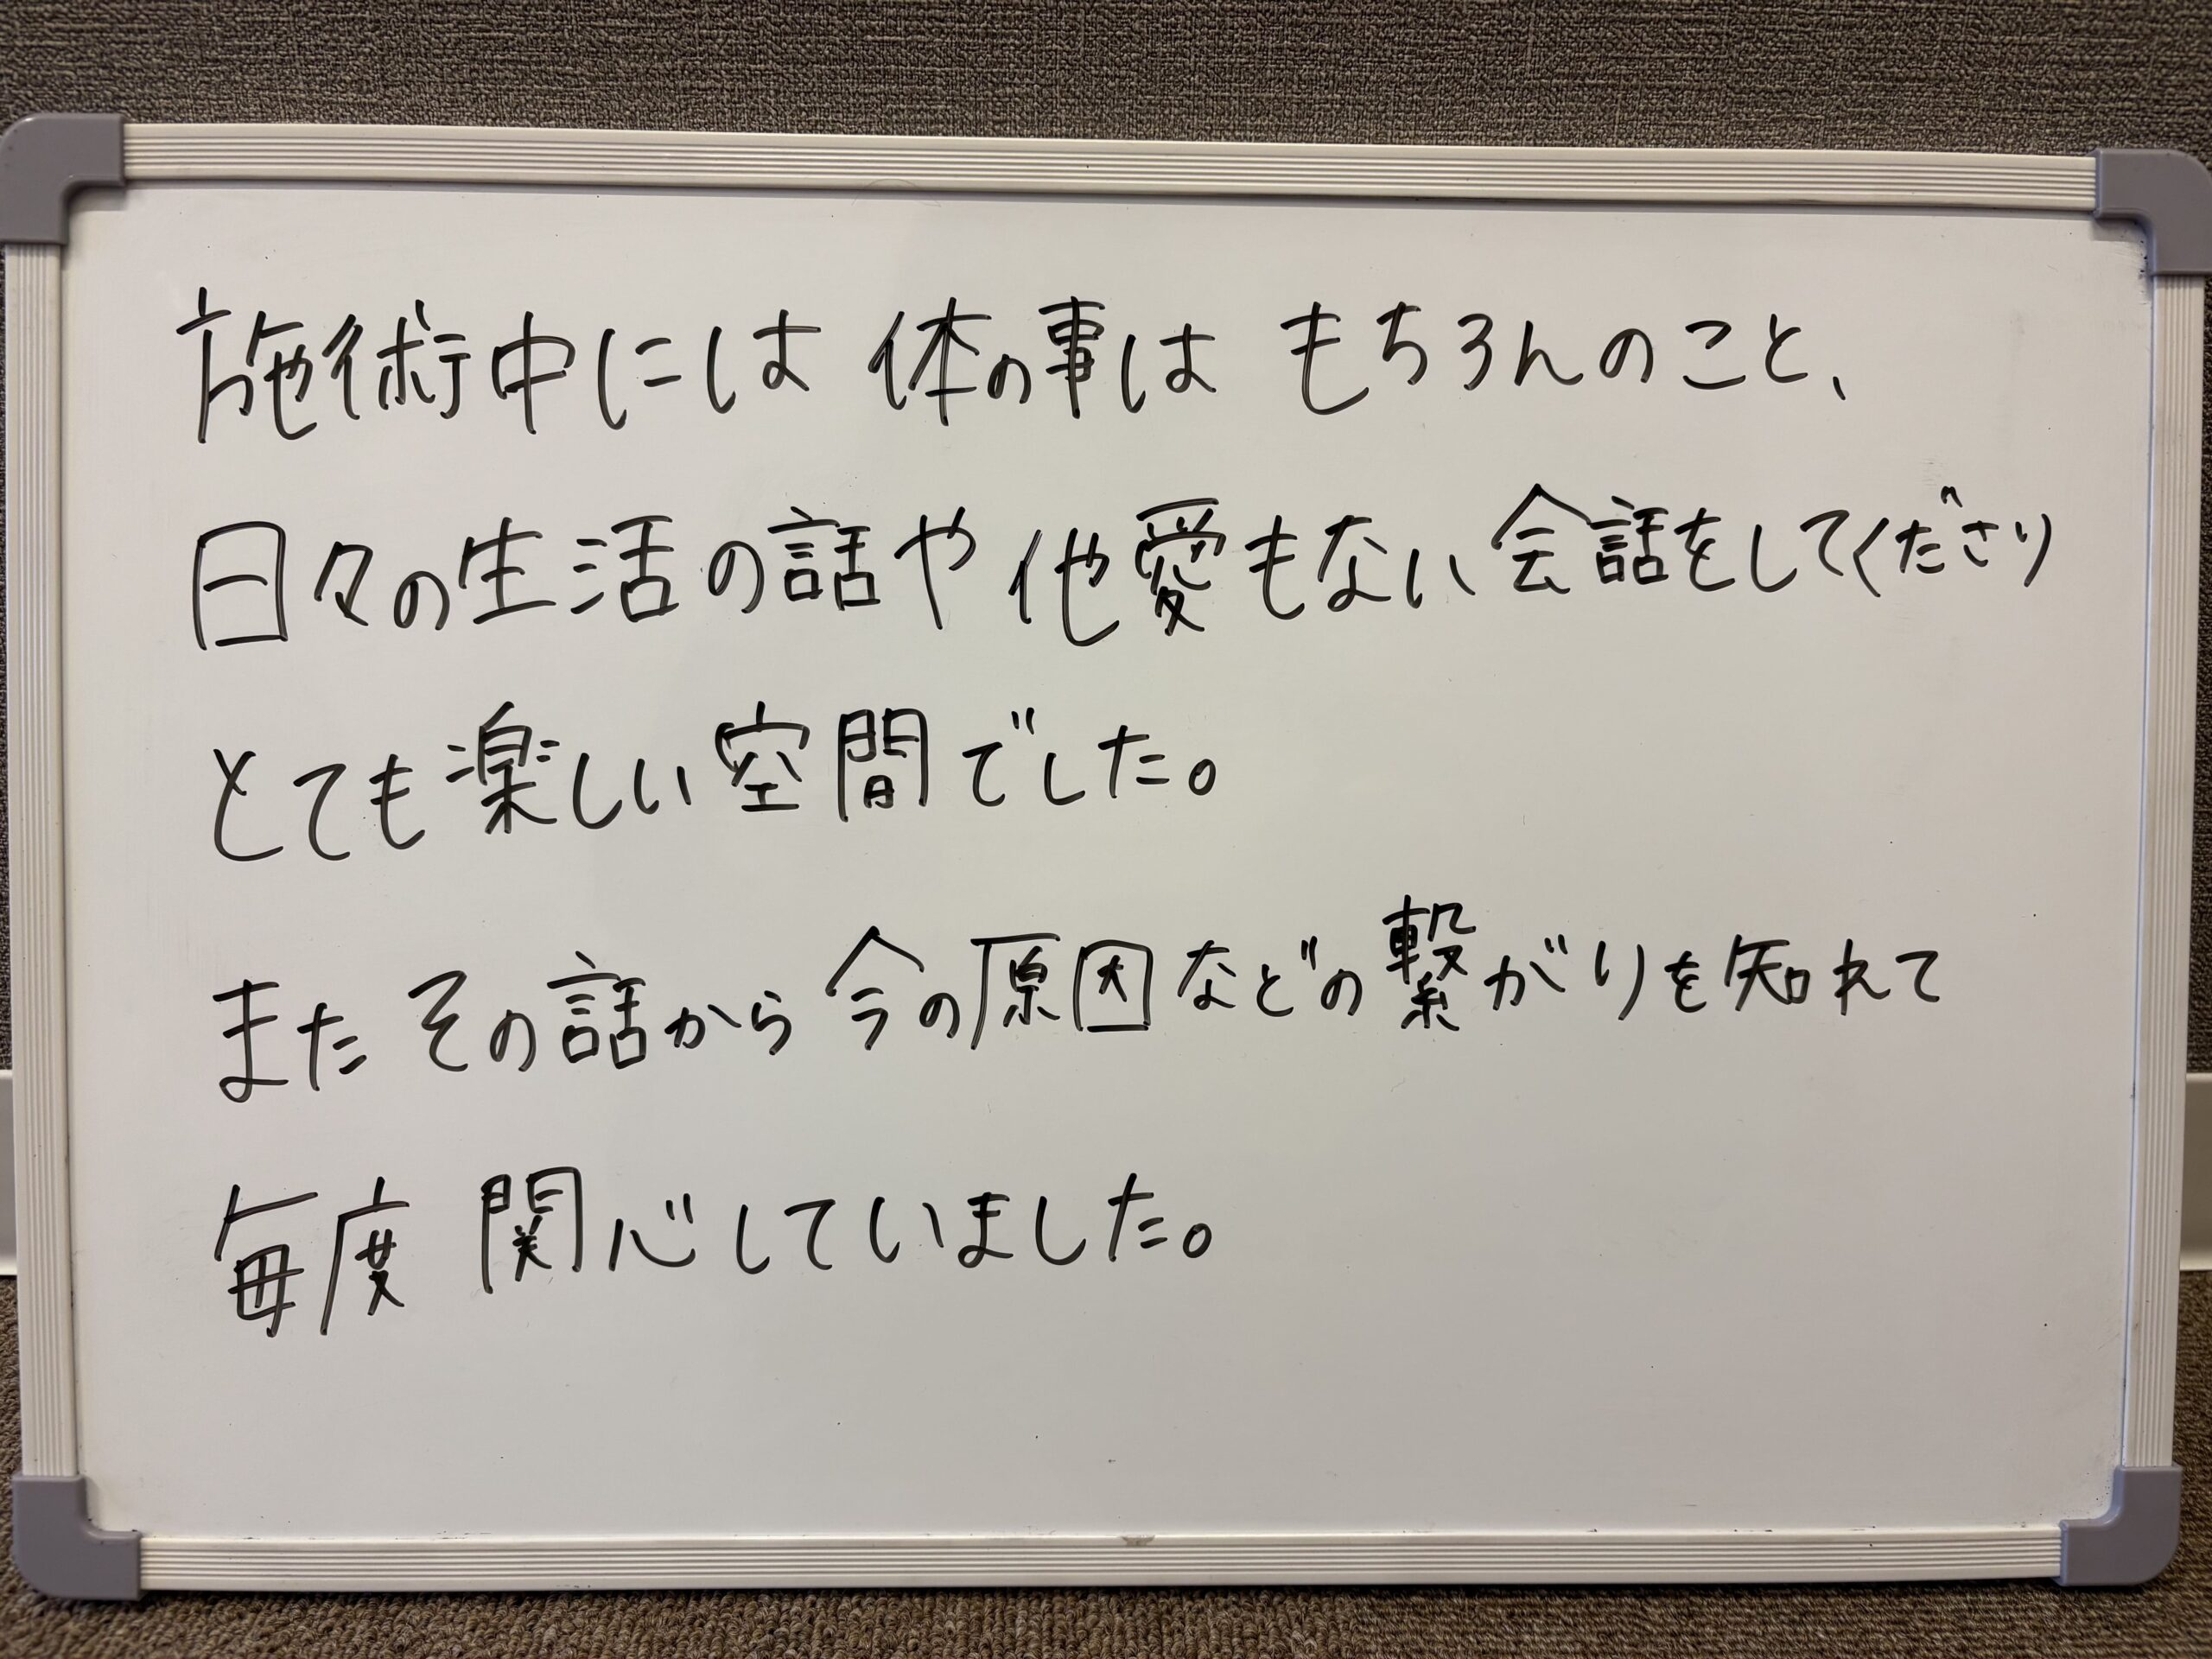 施術中には 体の事は もちろんのこと、
日々の生活の話や 他愛もない会話をしてくださり
とても楽しい空間でした。
また その話から 今の原因などの繋がりを知れて
毎度 関心していました。